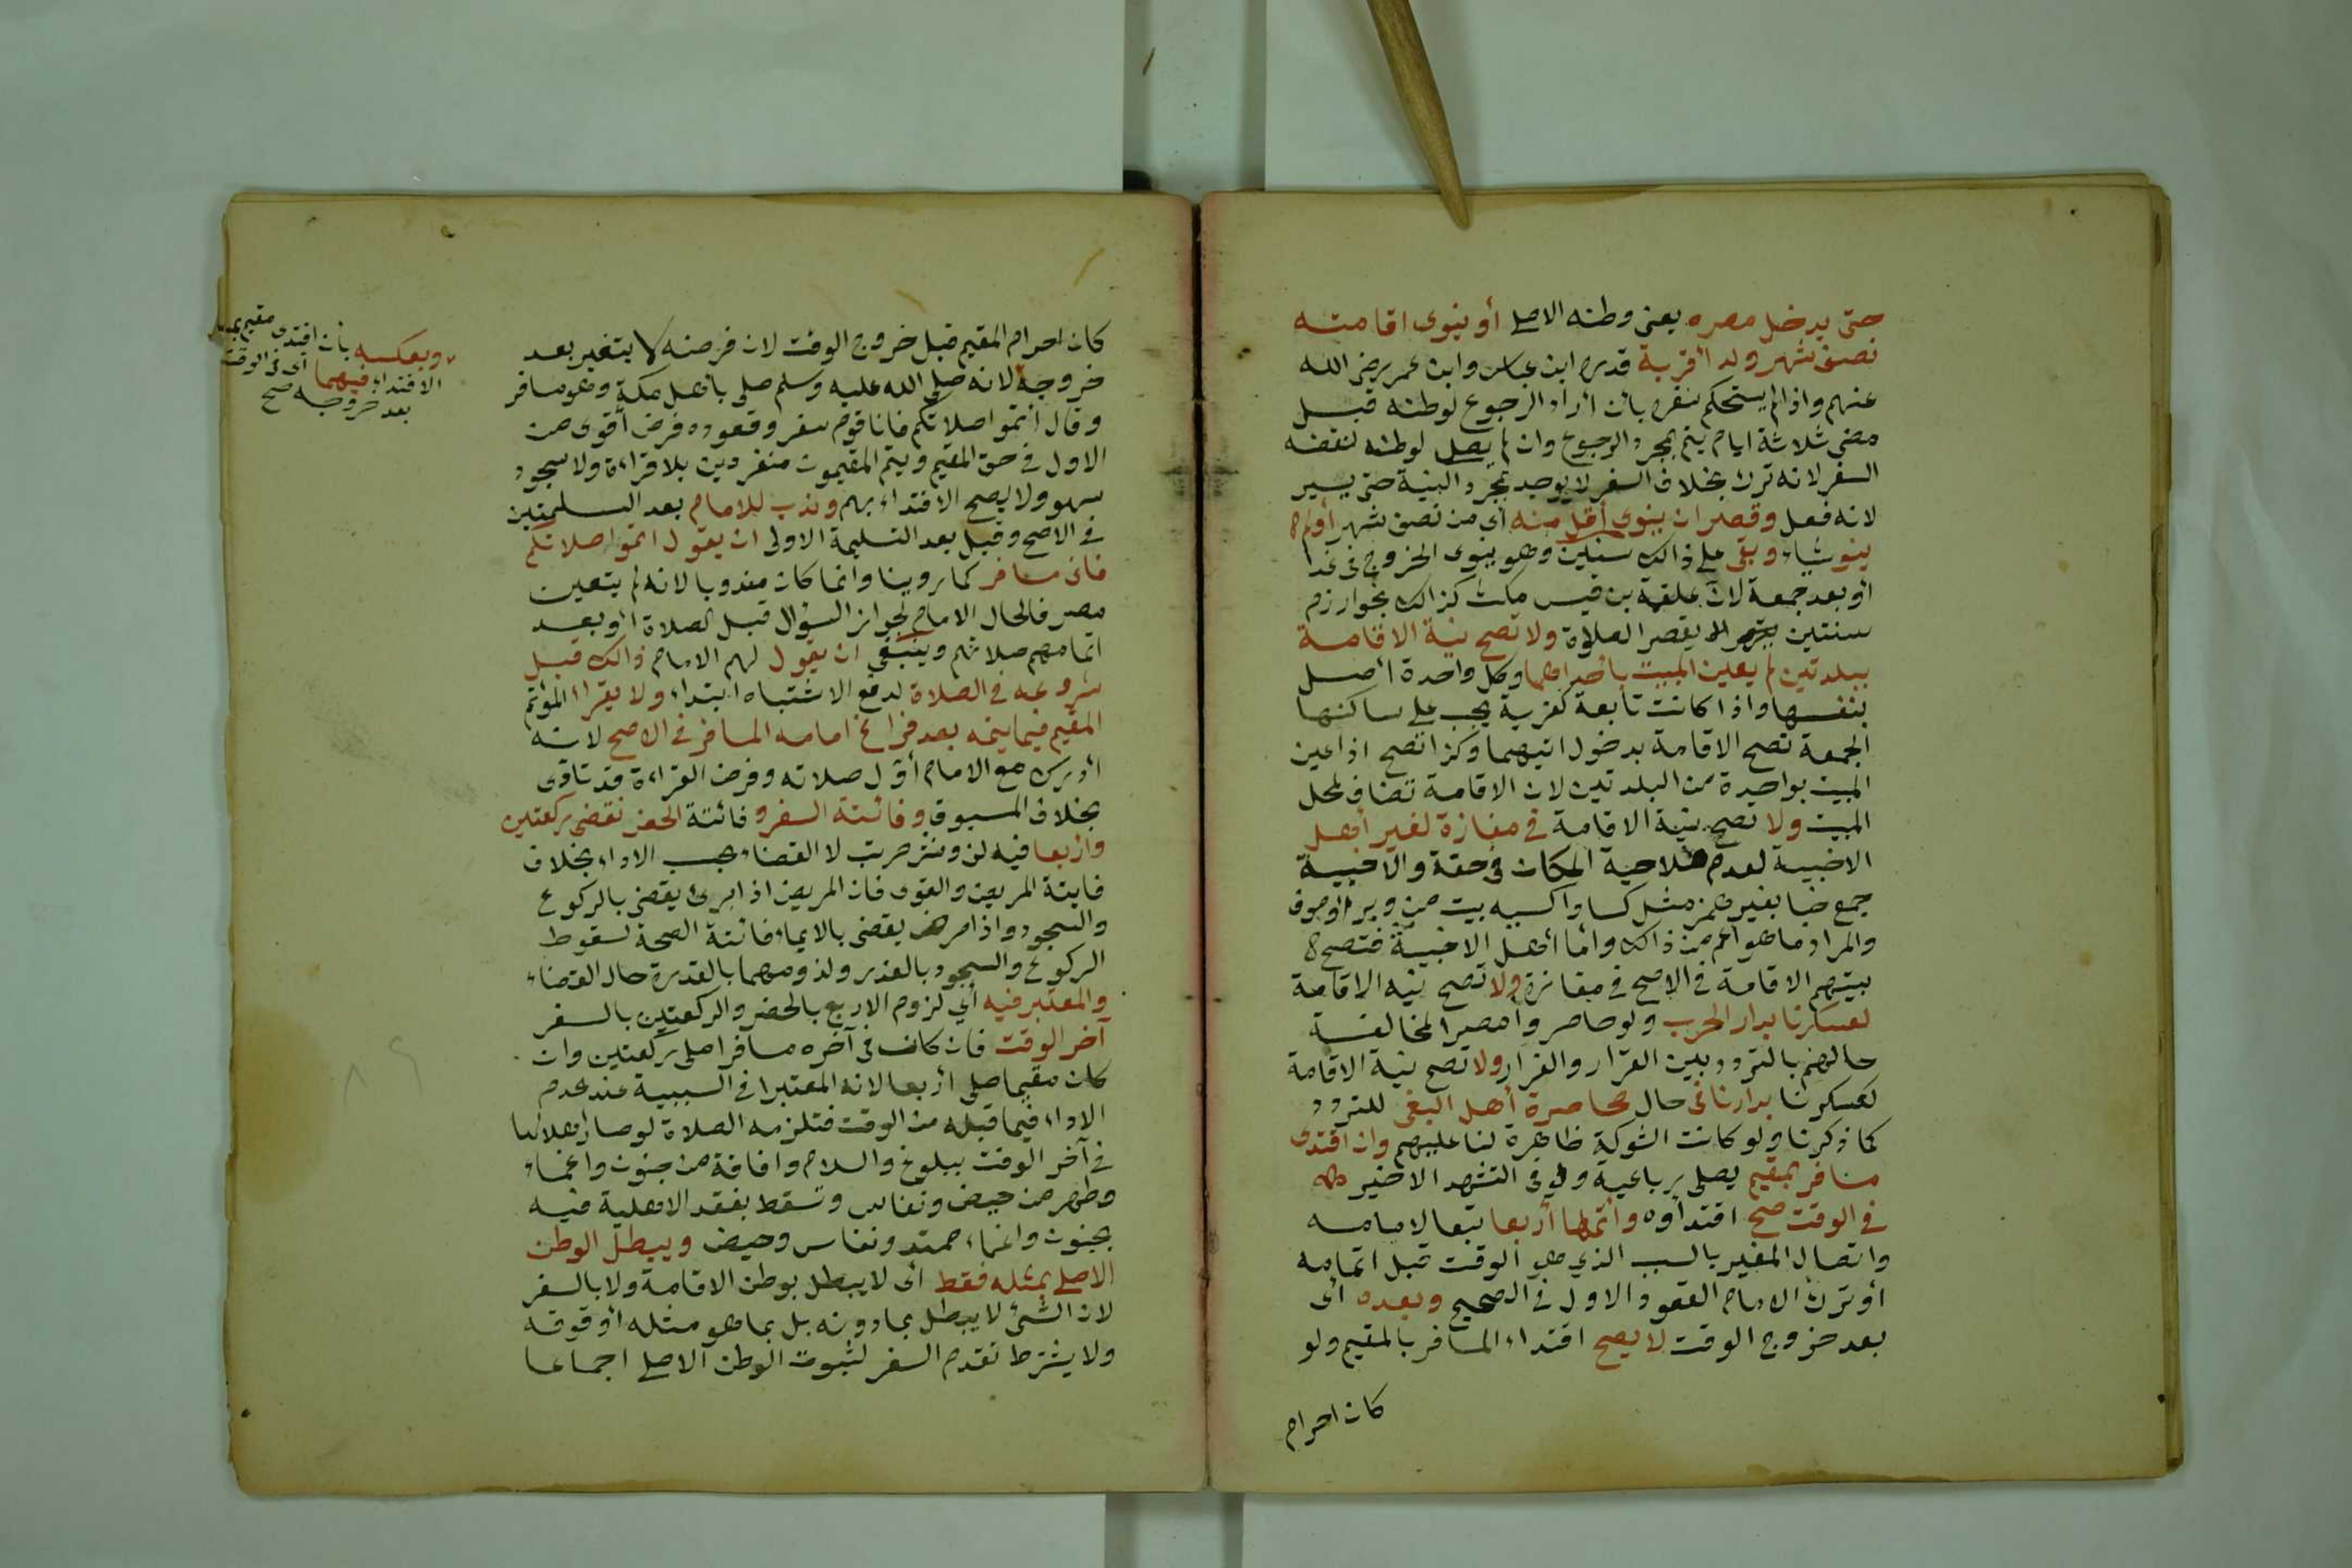 حتى يدخل مصره يعنى وطنه الاصلى أو ينوى اقامته
نصف شهر ولد أقربة قدره ابن عباس وابن عمر رضى الله
عنهم واذا لم يستحكم سفره بأن أراد الرجوع لوطنه قبل
مضى ثلاثة ايام يتم بمجرد الرجوع وان لم يصل لوطنه لنقضه
السفر لانه ترك بخلاف السفر لا يوجد بمجرد النية حتى يسير
لانه فعل وقصر ان ينوى أقل منه أى من نصف شهر أو لم
ينو شياء وبقى على ذالك سنين وهو ينوى الخروج فى غد
أو بعد جمعة لان علقمة بن قيس مكث كذالك بخوارزم
سنتين يقصر الصلاة ولا تصح نية الاقامة
ببلدتين لم يعين المبيت بأحداهما وكل واحدة أصل
بنفسها واذا كانت تابعة كقرية يجب على ساكنها
الجمعة تصح الاقامة بدخول اتيهما وكذا تصح اذا عين
المبيت بواحدة من البلدتين لان الاقامة تضاف لمحل
المبيت ولا تصح نية الاقامة فى مفازة لغير أهل
الاخبية لعدم صلاحية المكان فى حقة والاخبية
جمع خبا بغير همز مثل كساو اكسيه بيت من وبر أو صوف
والمراد ما هو أعم من ذالك وأما أهل الاخبية فتصح
بيتهم الاقامة فى الاصح فى مفازة ولا تصح نيه الاقامة
لعسكرنا بدار الحرب ولو حاصر وا مصرا لمخالفة
حالهم بالتردد بين القرار والفرار ولا تصح نية الاقامة
لعسكرنا بدارنا فى حال محاصرة أهل البغى للتردد
كما ذكرنا ولو كانت الشوكة ظاهرة لنا عليهم وان اقتدى
مسافر بمقيم يصلى رباعية ولو فى التشهد الاخير
فى الوقت صح اقتداؤه وأتمها أربعا تبعا لامامه
واتصال المغير بالسبب الذي هو الوقت قبل اتمامه
أو ترك الامام القعود الاول فى الصحيح وبعده أى
بعد خروج الوقت لا يصح اقتداء المسافر بالمقيم ولو
كان احرام
كان احرام المقيم قبل خروج الوقت لان فرضه لا يتغير بعد
خروجه لانه صلى الله عليه وسلم صلى بأهل مكة وهو مسافر
وقال اتموا صلاتكم فانا قوم سفر وقعوده فرض أقوى من
الاول فى حق المقيم ويتم المقيمون منفردين بلا قراءة ولا سجود
سهو ولا يصح الاقتداء بهم وندب للامام بعد التسليمتين
فى الاصح وقيل بعد التسليمة الاولى ان يقول اتموا صلاتكم
فانى مسافر كما روينا وانما كان مندوبا لانه لم يتعين
معرفا لحال الامام لجواز السؤال قبل الصلاة أو بعد
اتمامهم صلاتهم وينبغى ان يقول لهم الامام ذالك قبل
شروعه فى الصلاة لدفع الاشتباه ابتداء ولا يقراء المؤتم
المقيم فيما يتمه بعد فراغ امامه المسافر فى الاصح لانه
أدرك مع الامام أول صلاته وفرض القراءة قد تادى
بخلاف المسبوق وفائتة السفر وفائتة الحضر تقضى ركعتين
واربعا فيه لف ونشر مرتب لا القضاء بحسب الاداء بخلاف
فايتة المريض والقوى فان المريض اذا برئ يقضى بالركوع
والسجود واذا مرض يقضى بالايماء فائتة الصحة لسقوط
الركوع والسجود بالعذر ولزومهما بالقدرة حال القضاء
والمعتبر فيه أي لزوم الاربع بالحضر والركعتين بالسفر
آخر الوقت فان كان فى آخره مسافرا صلى ركعتين وان
كان مقيما صلى أربعا لانه المعتبر فى السببية عند عدم
الاداء فيما قبله من الوقت فتلزمه الصلاة لو صار اهلا لها
فى آخر الوقت ببلوغ والسلام وافاقة من جنون واغماء
وطهر من حيض ونفاس وتسقط بفقد الاهلية فيه
بجنون واغماء ممتد ونفاس وحيض ويبطل الوطن
الاصلى بمثله فقط أى لا يبطل بوطن الاقامة ولا بالسفر
لان الشئ لا يبطل بما دونه بل بما هو مثله أو فوقه
ولا يشترط تقدم السفر لثبوت الوطن الاصلى اجماعا
وبعكسه بأن اقتدى مقيم
الاقتداء فيهما أى فى الوقت
بعد خروجه صح